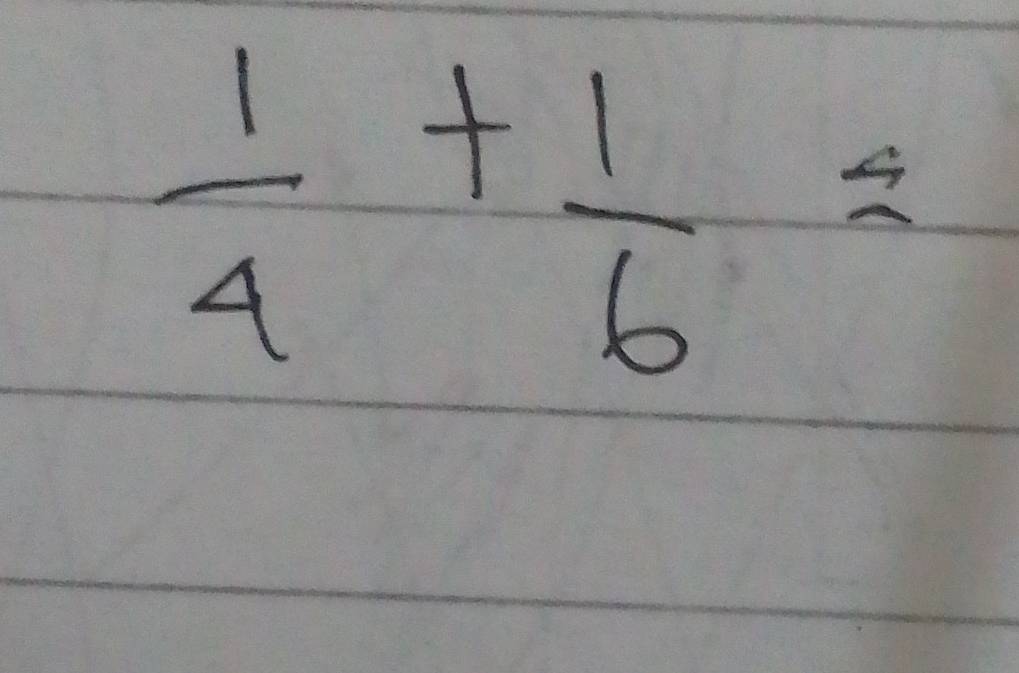 1/4 + 1/6 =